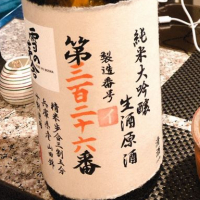 純米大吟醸
生酒原酒
製造番号
第三百二十六番
精米歩合三割五分
兵庫県産山田錦
雪の舎